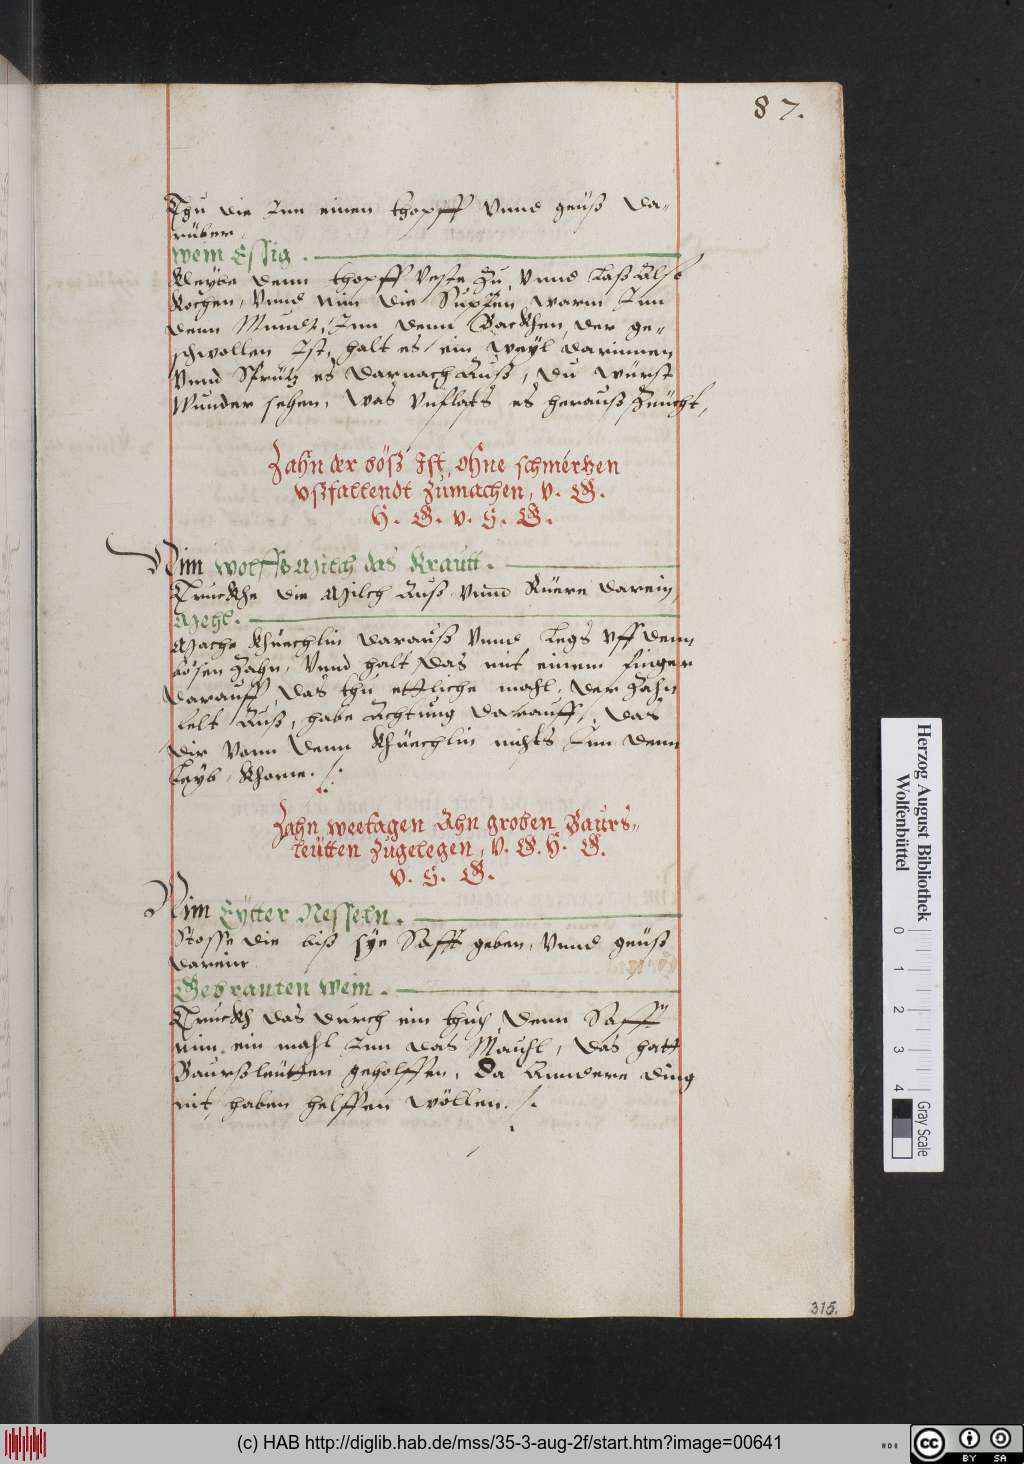 87.
Thu die Inn einen thopff Vnnd geüß da-
rüber.
wein Essig.
Kleybe denn thopff Veste Zu, Vnnd Laß Alß
Kochen, Vnnd nim die Suppen warm Inn
denn Mundt, Inn denn Backhen, der ge-
schwollen Ist, halt es / ein weyl darinnen
Vnnd Sprütz es darnach Auß, du würst
Wunder sehen, Was Vnflats es herauß Zeücht,
Zahn der böß Ist, ohne schmertzen
vßfallendt Zumachen, v. G.
H. G. v. S. G.
Nim wolffs Milch das Krautt.
Truckhe die Milch Auß Vnnd Rüere darein,
Mehl.
Mache Khüechlin darauß Vnnd Legs Vff denn
bösen Zahn, Vnnd halt das mit einem finger
darauff, das thu ettliche mahl, der Zahn
felt Auß, habe Achtung darauff /, das
dir Vonn denn Khüechlin nichts Inn denn
Leyb, Khome. /.
Zahn weetagen Ahn groben Baurs-
leütten Zugelegen, V. G. H. G.
v. S. G.
Nim Eytter Nesseln.
Stosse die biß sye Safft geben, Vnnd geüß
darein
Gebranten Wein.
Truckh das durch ein thuch, denn Safft
nim ein mahl Inn das Mauhl, das hatt
Baurßleütten geholffen, Da Anndere ding
nit haben helffen wöllen. /.
315.
Herzog August Bibliothek
Wolfenbüttel
0 1 2 3 4
Gray Scale
(c) HAB http://diglib.hab.de/mss/35-3-aug-2f/start.htm?image=00641
cc BY SA